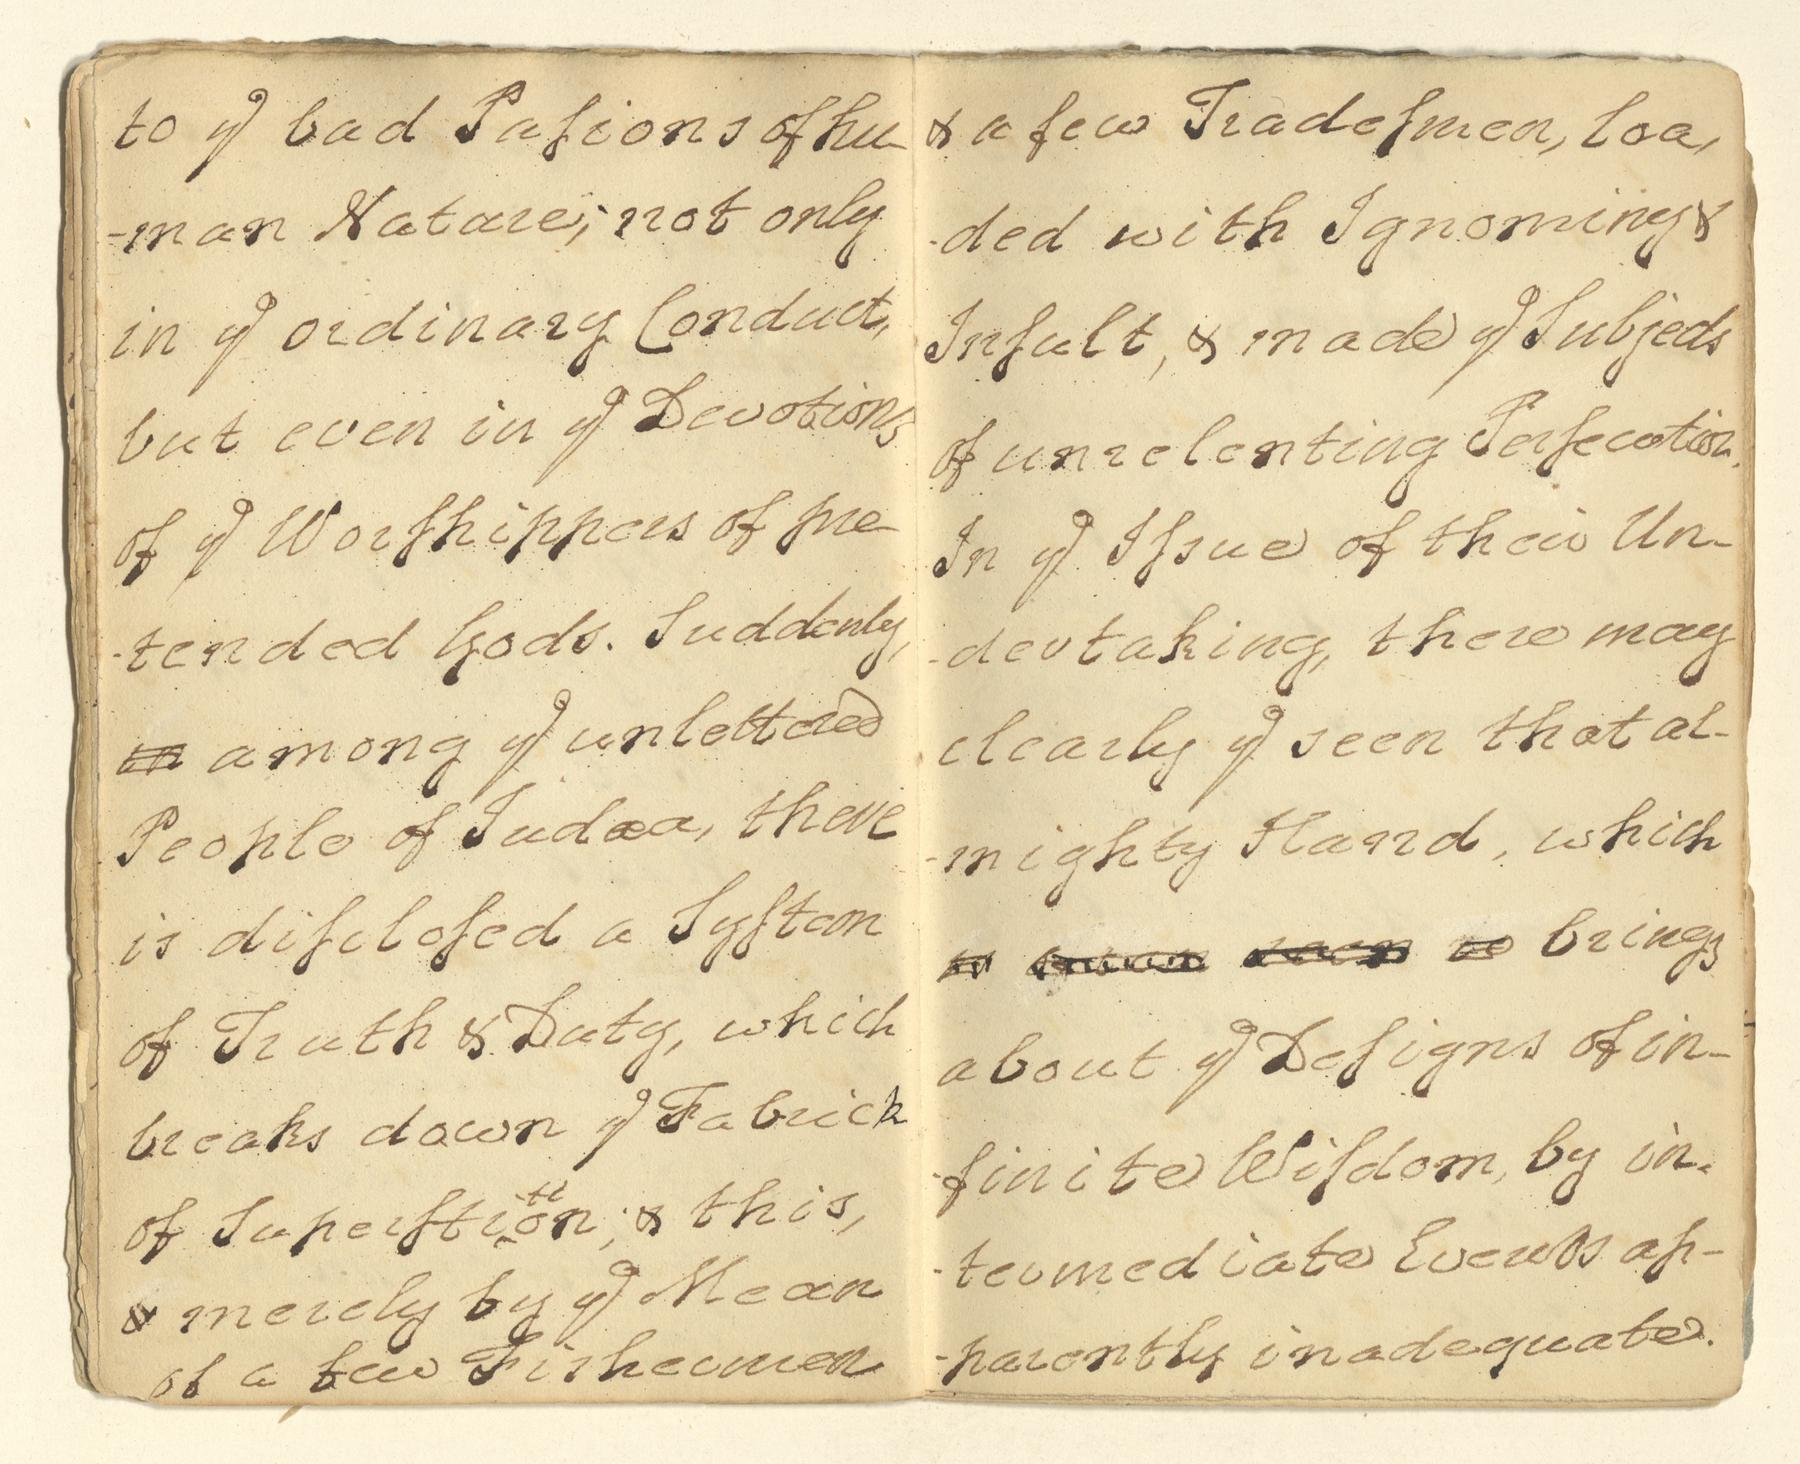 to yͤ bad Paſsions of hu-
-man Nature; not only
in yͤ ordinary Conduct,
but even in yͤ Devotions
of yͤ Worſhippers of pre-
-tended Gods. Suddenly,
among yͤ unlettered
People of Judæa, there
is diſcloſed a Syſtem
of Truth & Duty, which
breaks down yͤ Fabrick
of Superſtition; & this,
& merely by yͤ Mean
of a few Fishermen
& a few Tradeſmen, loa,
-ded with Ignominy &
Inſult, & made yͤ Subjects
of unrelenting Perſecution.
In yͤ Iſsue of their Un-
-dertaking, there may
clearly yͤ seen that al-
-mighty Hand, which
brings
about yͤ Deſigns of in-
-finite Wiſdom, by in-
-termediate Events ap-
-parently inadequate.